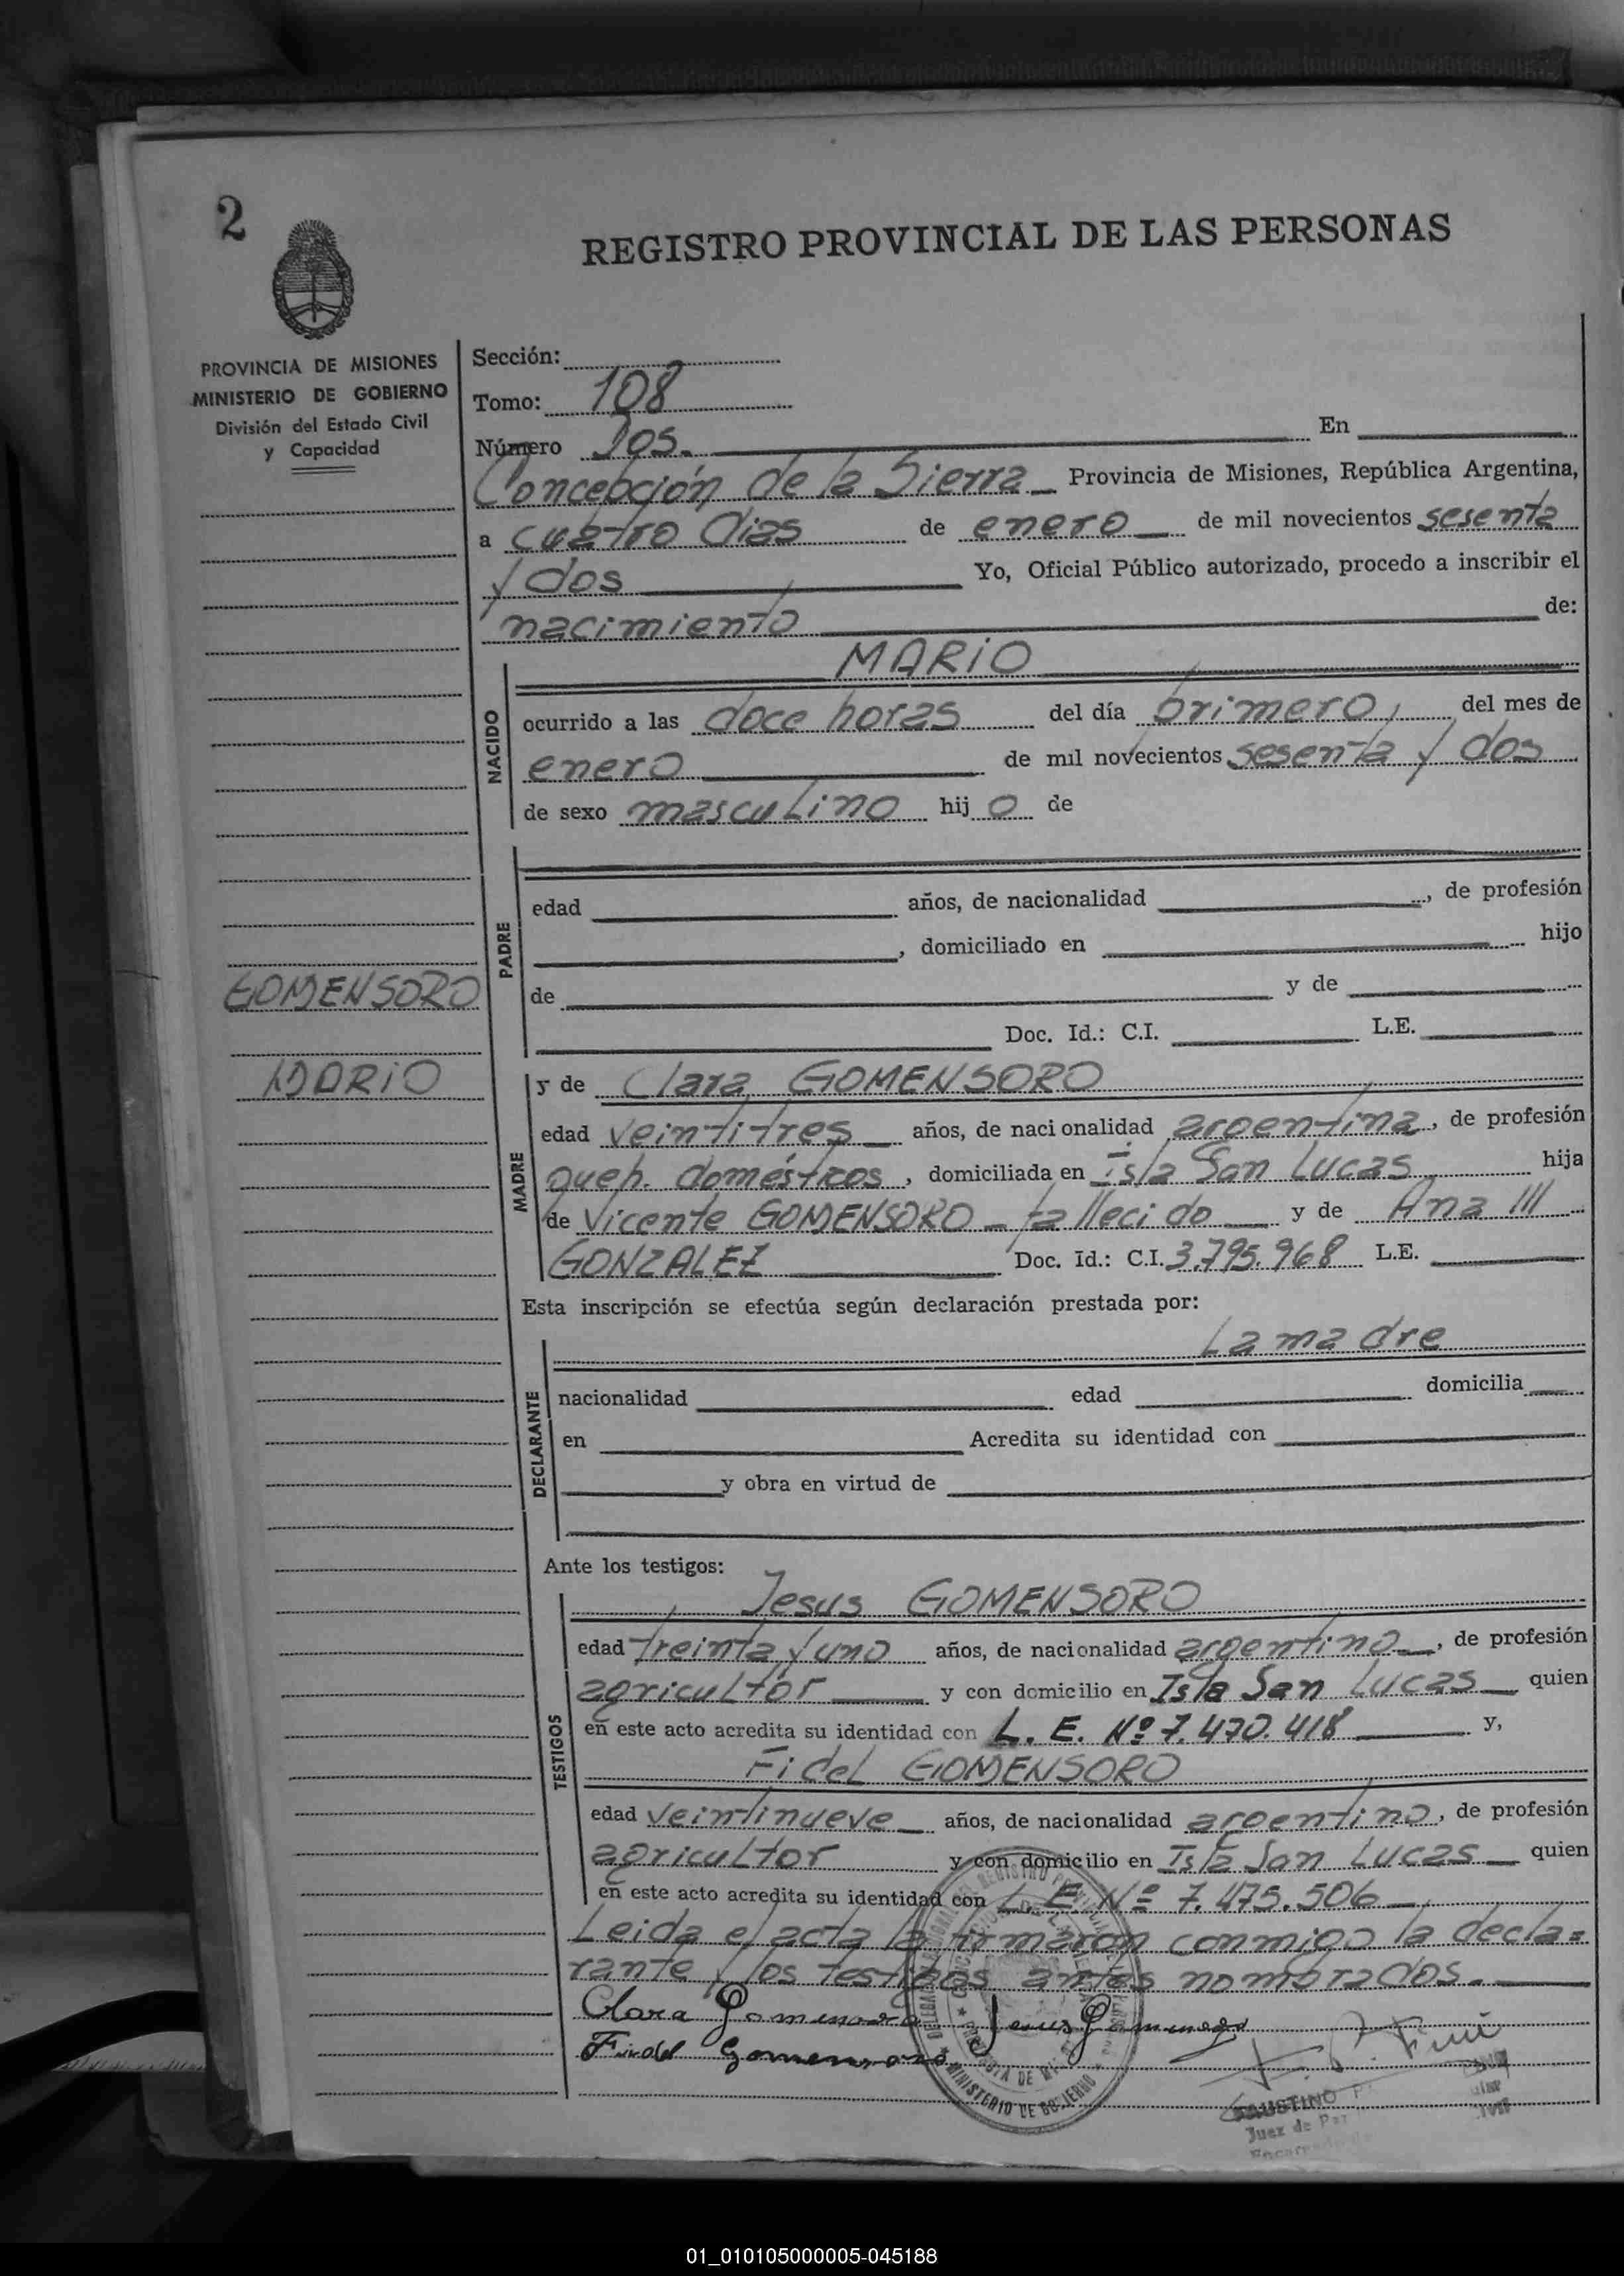 2
REGISTRO PROVINCIAL DE LAS PERSONAS
PROVINCIA DE MISIONES
MINISTERIO DE GOBIERNO
División del Estado Civil
y Capacidad
Sección:
Tomo: 108
Número Dos. En
Concepción de la Sierra Provincia de Misiones, República Argentina,
a cuatro dias de enero de mil novecientos sesenta
y dos Yo, Oficial Público autorizado, procedo a inscribir el
nacimiento de:
MARIO
NACIDO
ocurrido a las doce horas del día primero, del mes de
enero de mil novecientos sesenta y dos
de sexo masculino hij o de
PADRE
edad años, de nacionalidad , de profesión
, domiciliado en hijo
de y de
Doc. Id.: C.I. L.E.
GOMENSORO
MARIO
MADRE
y de Clara GOMENSORO
edad veintitres años, de nacionalidad argentina, de profesión
queh. domésticos, domiciliada en Isla San Lucas hija
de Vicente GOMENSORO - fallecido y de Ana
GONZALEZ Doc. Id.: C.I. 3.795.968 L.E.
Esta inscripción se efectúa según declaración prestada por:
La madre
DECLARANTE
nacionalidad edad domicilia
en Acredita su identidad con
y obra en virtud de
Ante los testigos:
TESTIGOS
Jesus GOMENSORO
edad treinta y uno años, de nacionalidad argentino, de profesión
agricultor y con domicilio en Isla San Lucas quien
en este acto acredita su identidad con L. E. Nº 7.470.418 y,
Fidel GOMENSORO
edad veintinueve años, de nacionalidad argentino, de profesión
agricultor y con domicilio en Isla San Lucas quien
en este acto acredita su identidad con L. E. Nº 7.475.506
Leida el acta la firmaron conmigo la decla=
rante y los testigos antes nombrados.
Clara Gomensoro Jesus
Gomensoro
MINISTERIO DE GOBIERNO
FAUSTINO
Juez de Paz
01_010105000005-045188